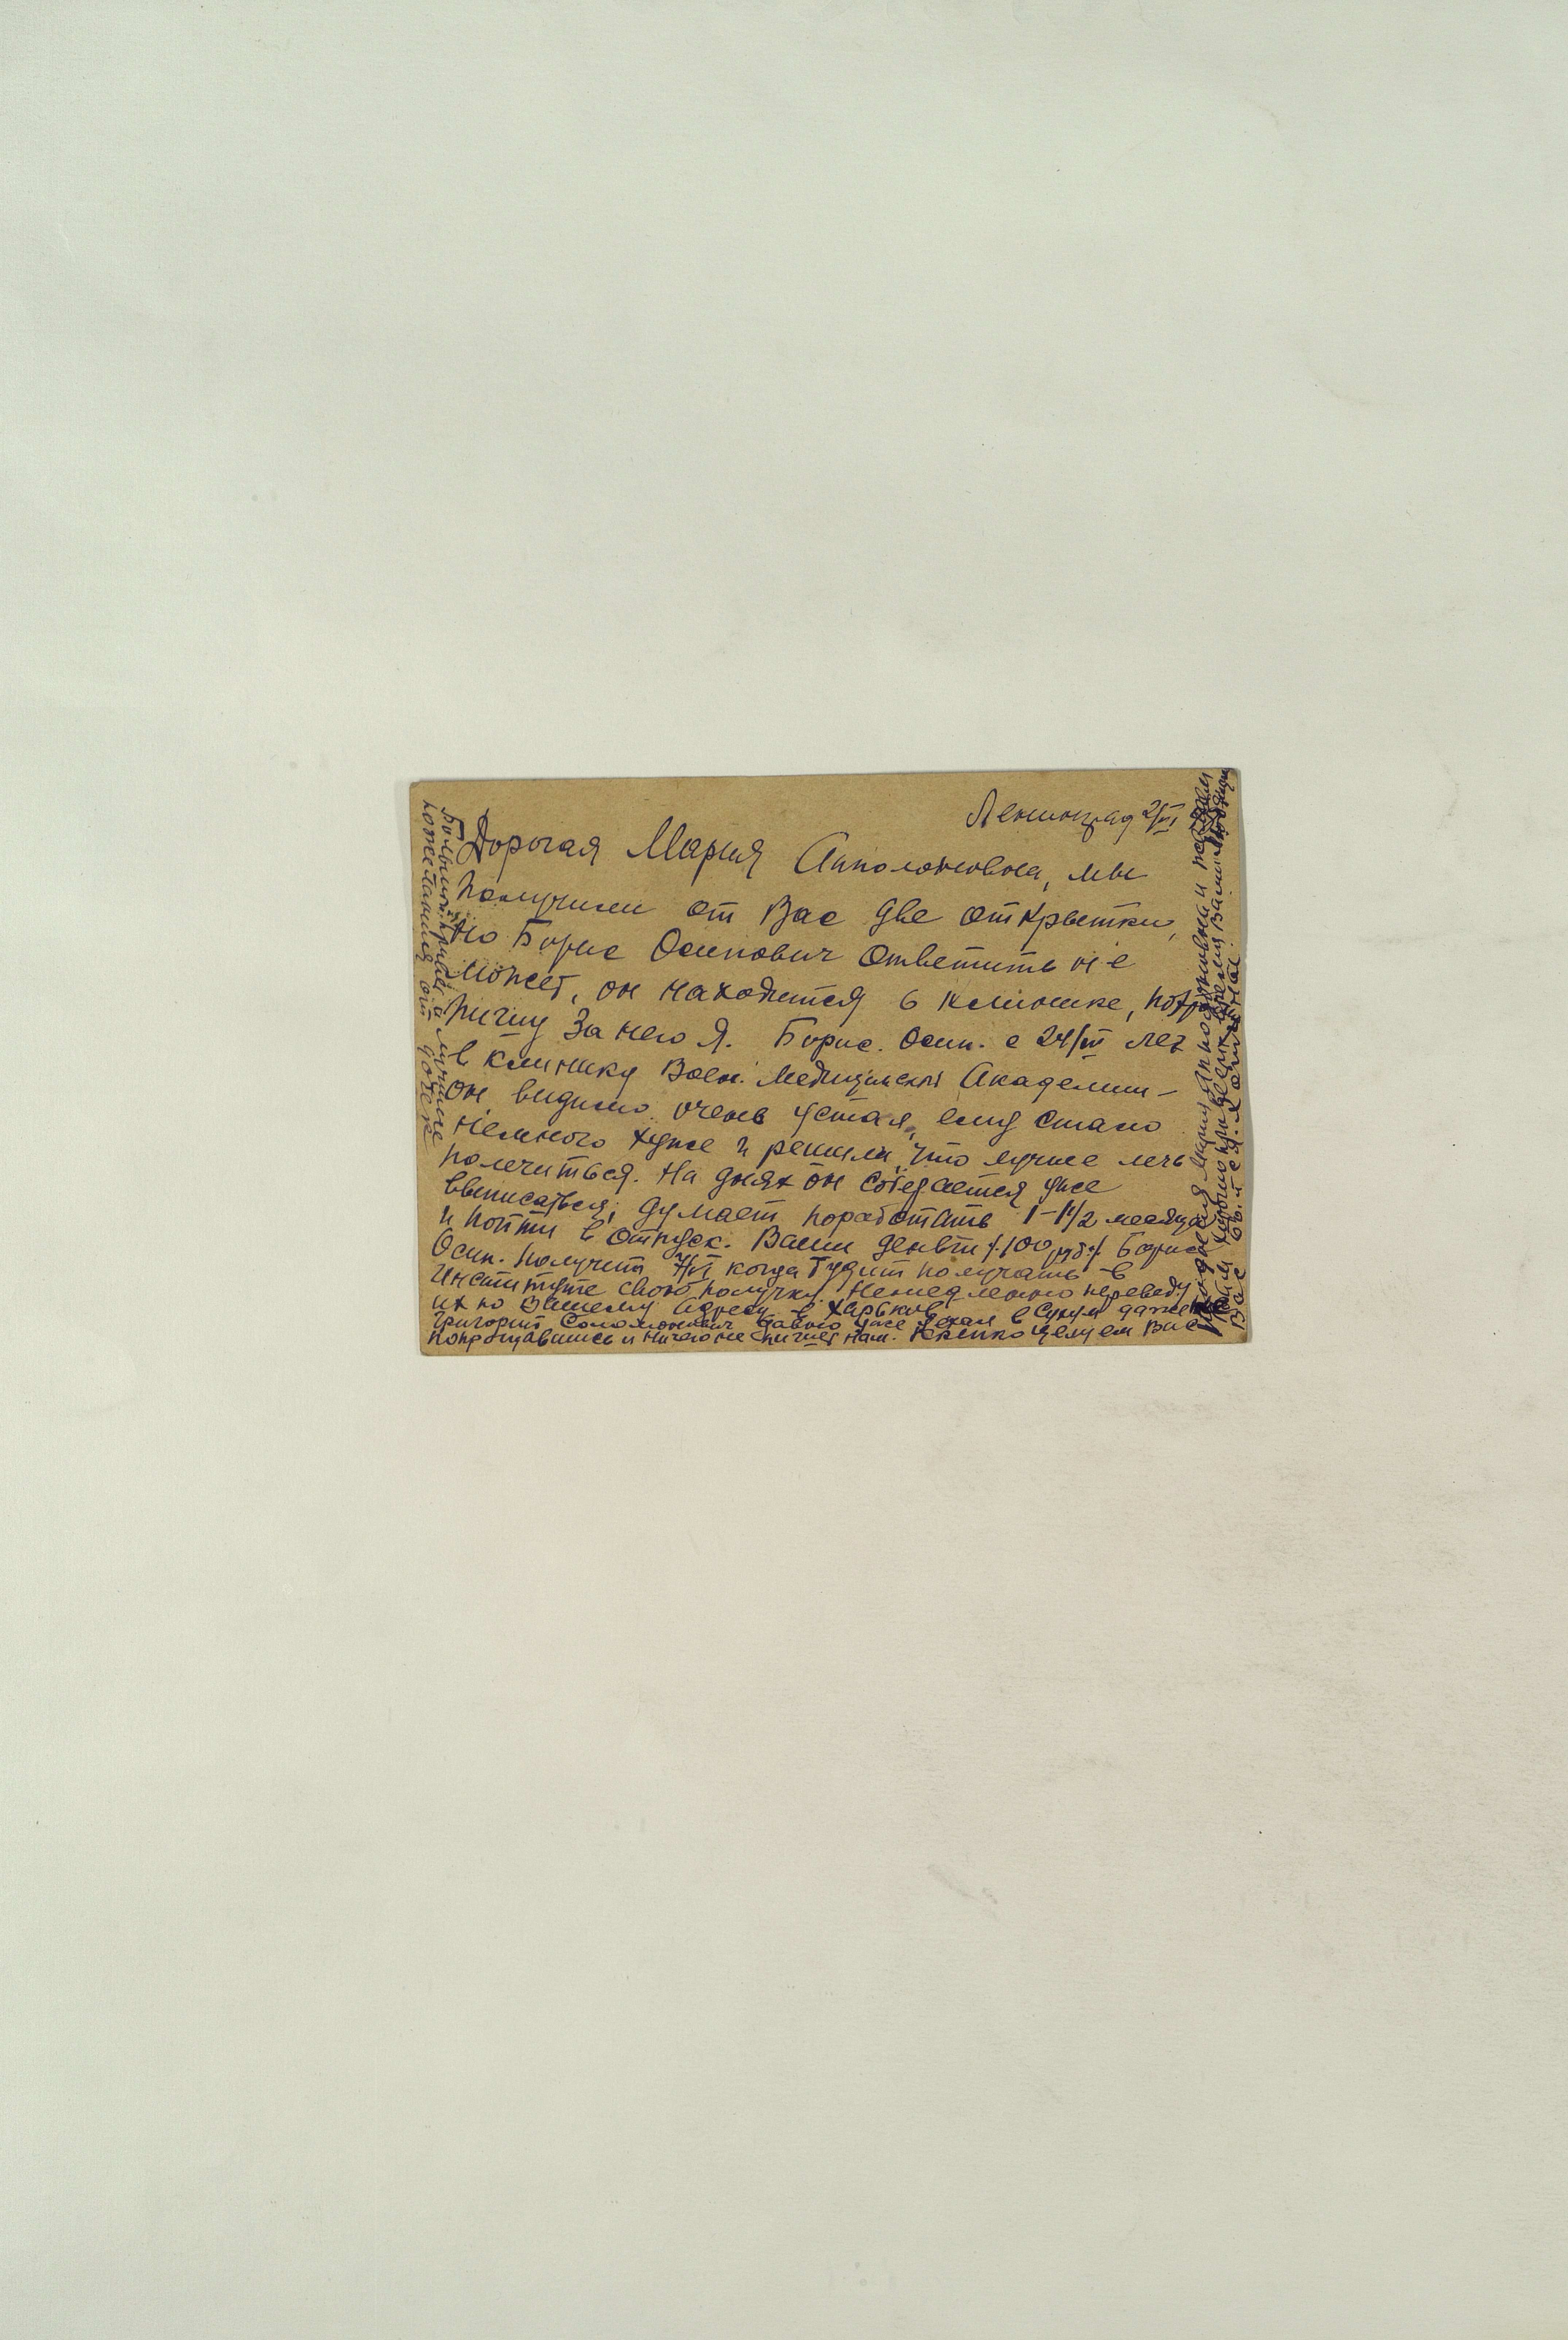 Ленинград 2/VI
Дорогая Мария Апполоновна, мы
получили от Вас две открытки,
но Борис Осипович ответить не
может, он находится в клинике,
пишу за него я. Борис. Осип. с 24/III лег
в клинику Воен. Медицинской Академии –
он видимо очень устал, ему стало
немного хуже и решили, что лучше лечь
полечиться. На днях он собирается уже
выписаться, думает поработать 1–1 1/2 месяца
и пойти в отпуск. Ваши деньги /.100 руб./ Борис
Осип. получит 7/VI когда будит получать в
Институте свою получку. Немедленно переведу
их по Вашему адресу в Харьков
Григорий Соломонович давно уже уехал в Сумы даже не
попрощавшись и ничего не пишет нам. Крепко целуем Вас
Большой привет а лучшие
пожелания от
Мария и
Вам
Вас